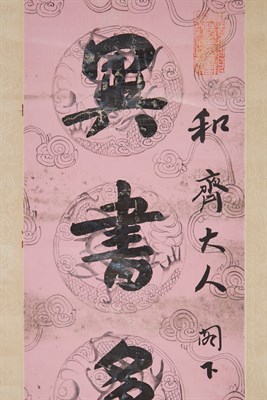 和齊大人閣下
異書多